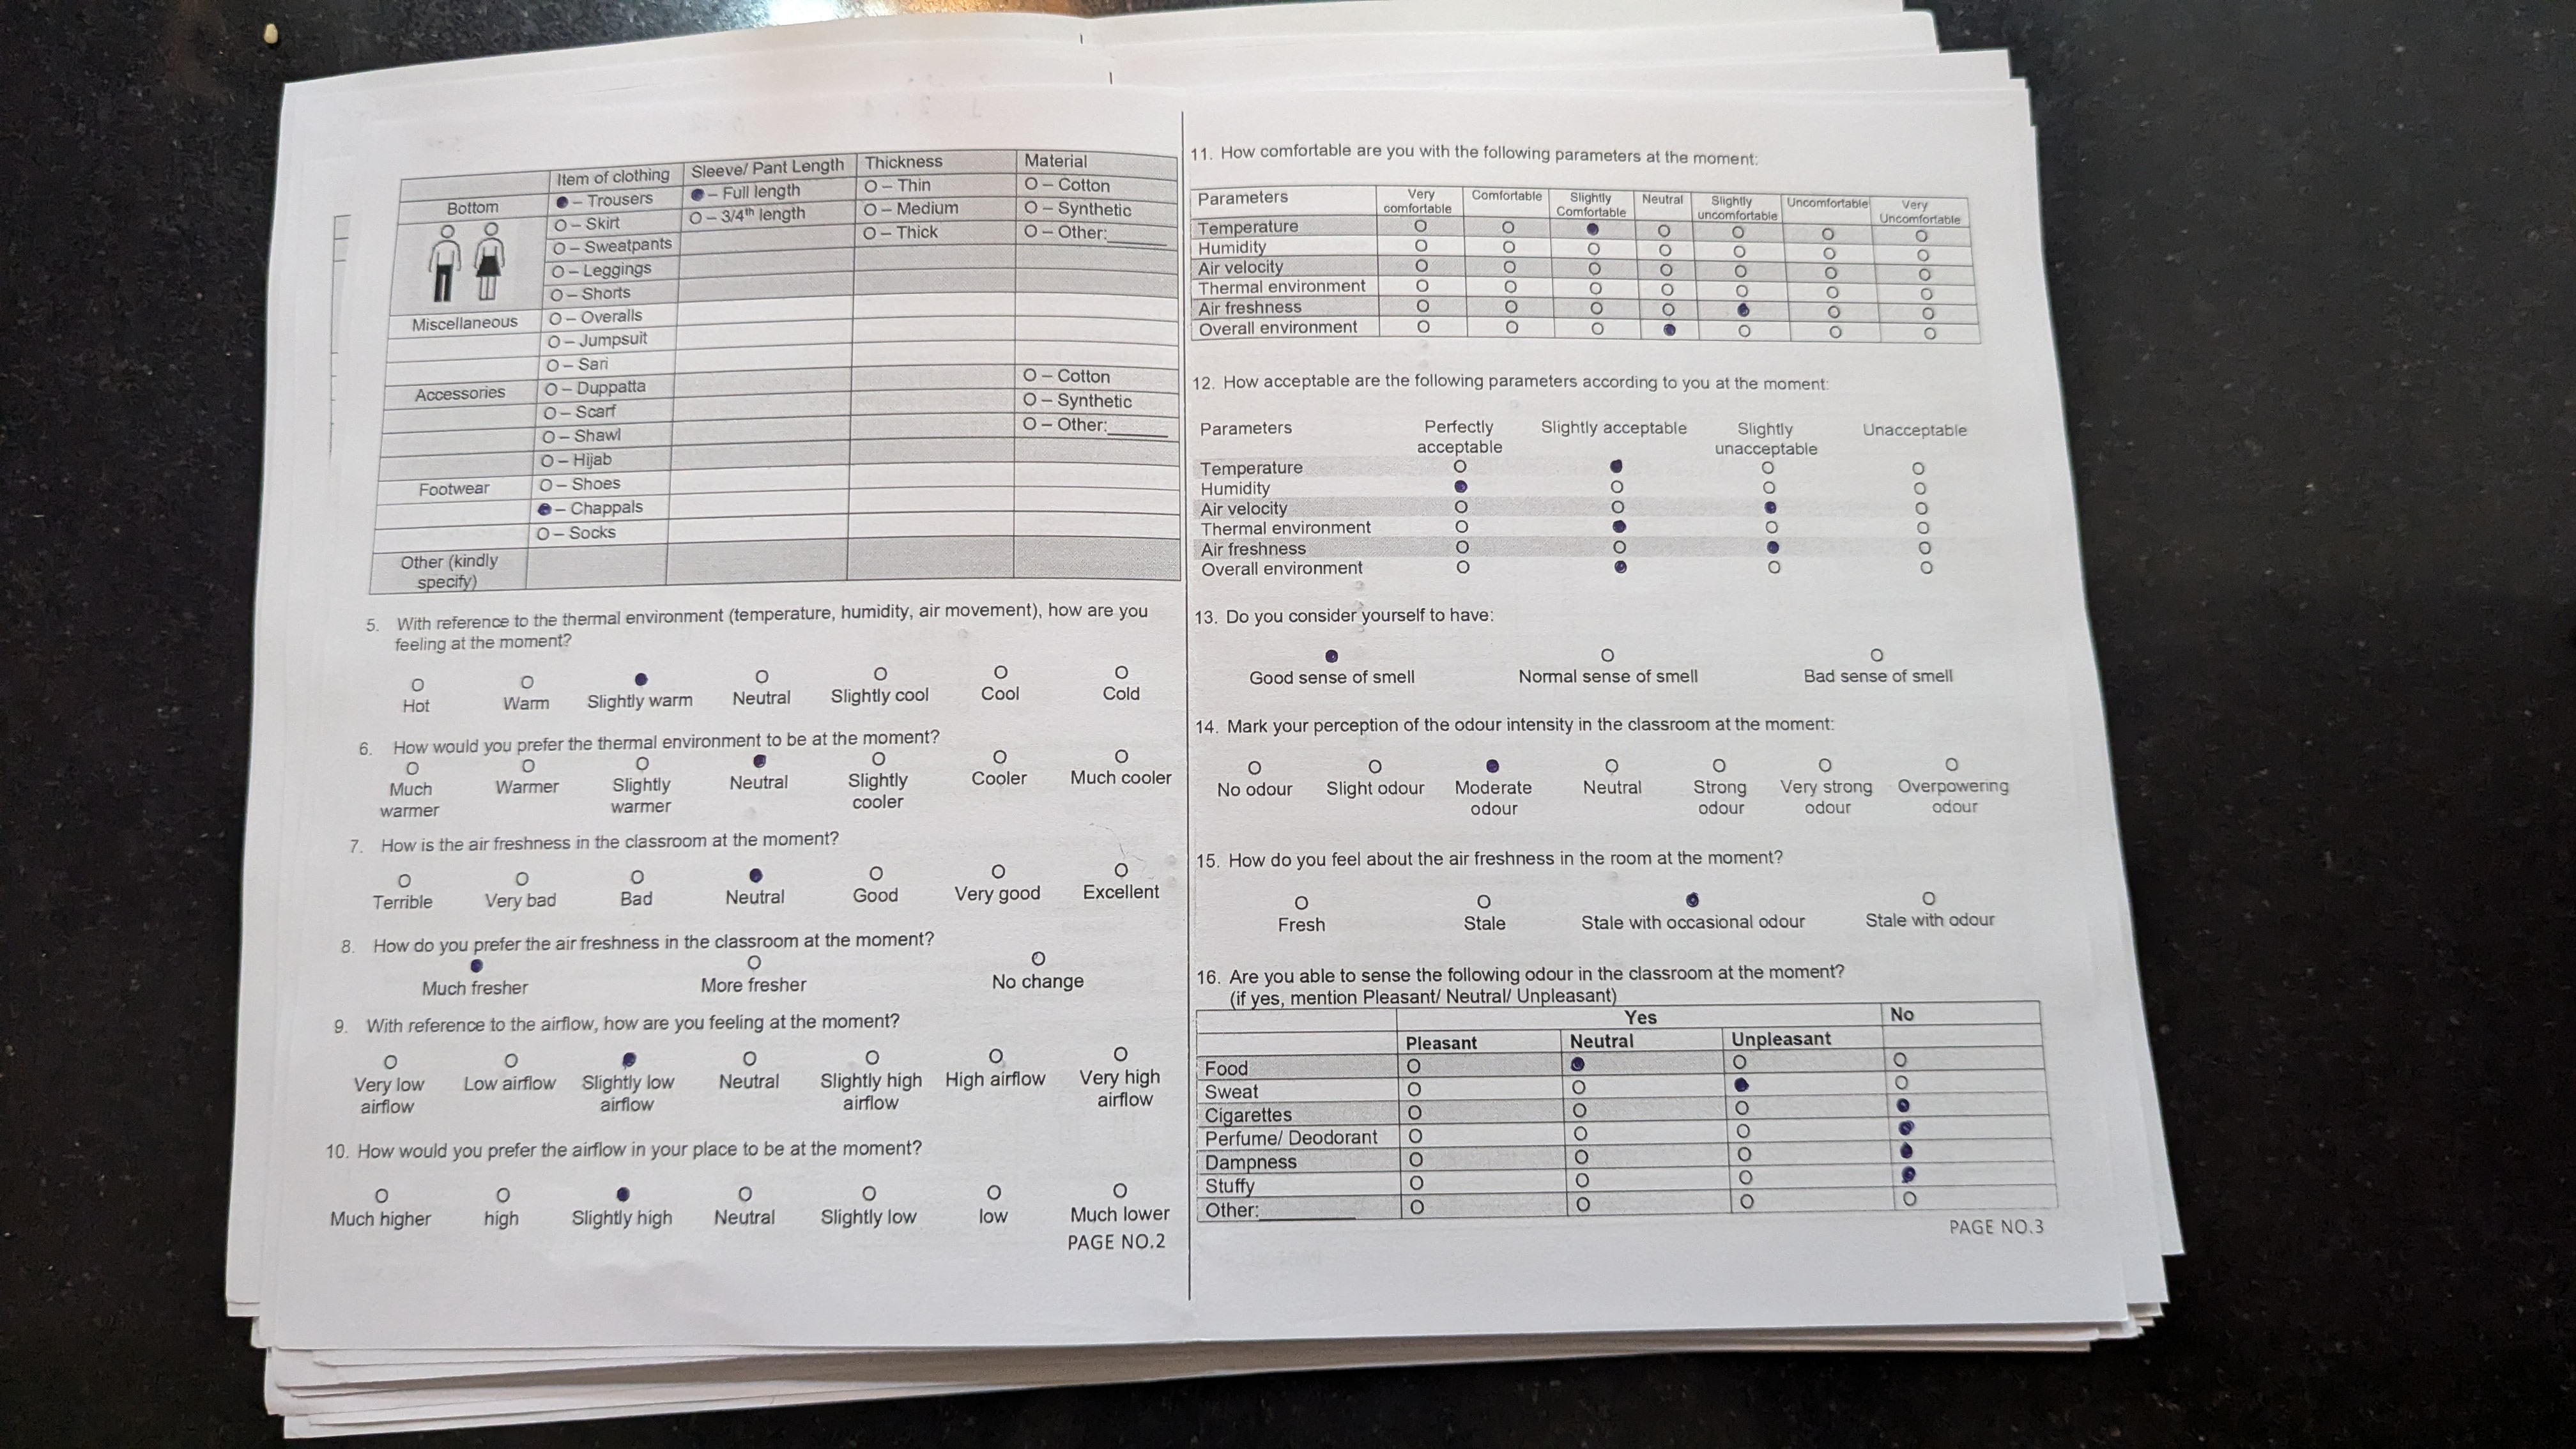 Item of clothing Sleeve/ Pant Length Thickness Material
Bottom ●– Trousers ●– Full length O – Thin O – Cotton
O – Skirt O – 3/4th length O – Medium O – Synthetic
O – Sweatpants O – Thick O – Other:______
O – Leggings
O – Shorts
Miscellaneous O – Overalls
O – Jumpsuit
O – Sari
Accessories O – Duppatta O – Cotton
O – Scarf O – Synthetic
O – Shawl O – Other:______
O – Hijab
Footwear O – Shoes
●– Chappals
O – Socks
Other (kindly
specify)
5. With reference to the thermal environment (temperature, humidity, air movement), how are you
feeling at the moment?
O O ● O O O O
Hot Warm Slightly warm Neutral Slightly cool Cool Cold
6. How would you prefer the thermal environment to be at the moment?
O O O ● O O O
Much Warmer Slightly Neutral Slightly Cooler Much cooler
warmer warmer cooler
7. How is the air freshness in the classroom at the moment?
O O O ● O O O
Terrible Very bad Bad Neutral Good Very good Excellent
8. How do you prefer the air freshness in the classroom at the moment?
● O O
Much fresher More fresher No change
9. With reference to the airflow, how are you feeling at the moment?
O O ● O O O O
Very low Low airflow Slightly low Neutral Slightly high High airflow Very high
airflow airflow airflow airflow
10. How would you prefer the airflow in your place to be at the moment?
O O ● O O O O
Much higher high Slightly high Neutral Slightly low low Much lower
PAGE NO.2
11. How comfortable are you with the following parameters at the moment:
Parameters Very Comfortable Slightly Neutral Slightly Uncomfortable Very
comfortable Comfortable uncomfortable Uncomfortable
Temperature O O ● O O O O
Humidity O O O O O O O
Air velocity O O O O O O O
Thermal environment O O O O O O O
Air freshness O O O O ● O O
Overall environment O O O ● O O O
12. How acceptable are the following parameters according to you at the moment:
Parameters Perfectly Slightly acceptable Slightly Unacceptable
acceptable unacceptable
Temperature O ● O O
Humidity ● O O O
Air velocity O O ● O
Thermal environment O ● O O
Air freshness O O ● O
Overall environment O ● O O
13. Do you consider yourself to have:
● O O
Good sense of smell Normal sense of smell Bad sense of smell
14. Mark your perception of the odour intensity in the classroom at the moment:
O O ● O O O O
No odour Slight odour Moderate Neutral Strong Very strong Overpowering
odour odour odour odour
15. How do you feel about the air freshness in the room at the moment?
O O ● O
Fresh Stale Stale with occasional odour Stale with odour
16. Are you able to sense the following odour in the classroom at the moment?
(if yes, mention Pleasant/ Neutral/ Unpleasant)
Yes No
Pleasant Neutral Unpleasant
Food O ● O O
Sweat O O ● O
Cigarettes O O O ●
Perfume/ Deodorant O O O ●
Dampness O O O ●
Stuffy O O O ●
Other:__________ O O O O
PAGE NO.3